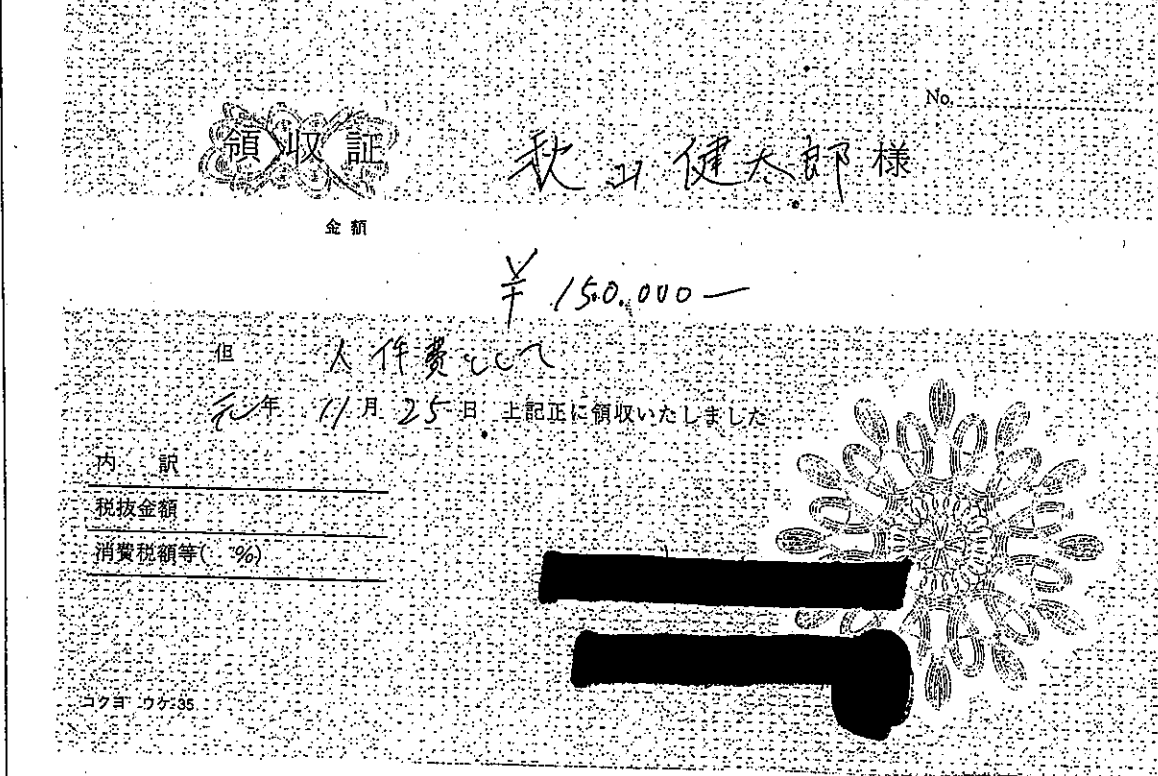 No.
領収証 秋山健太郎様
金額
¥150,000—
但 人件費として
元年 11月 25日 上記正に領収いたしました
内 訳
税抜金額
消費税額等( %)
コクヨ ウケ-35